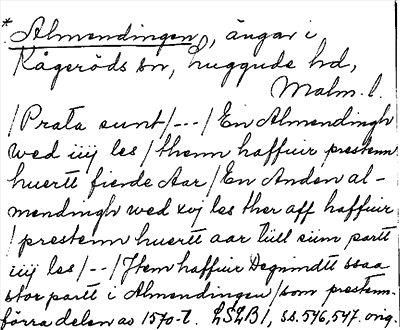 * Almendingen, ängar i
Kågeröds sn, Luggude hd,
Malm. l.
/Prata sunt/---/En Almendingh
wed iiij les/thenn haffuir prestenn
huertt fierde Aar/En Anden al-
mendingh wed xvj les ther aff haffuir
/prestenn huertt aar tiill siin partt
iiij les/--/Jtem haffuir Degnindtt ssaa
stor partt i Almendingen/som prestenn.
förra delen av 1570-t. LSLB 1, ss. 546, 547. orig.